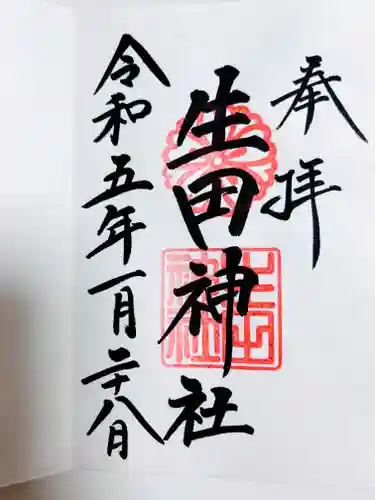 奉拝
生田神社
令和五年一月二十八月